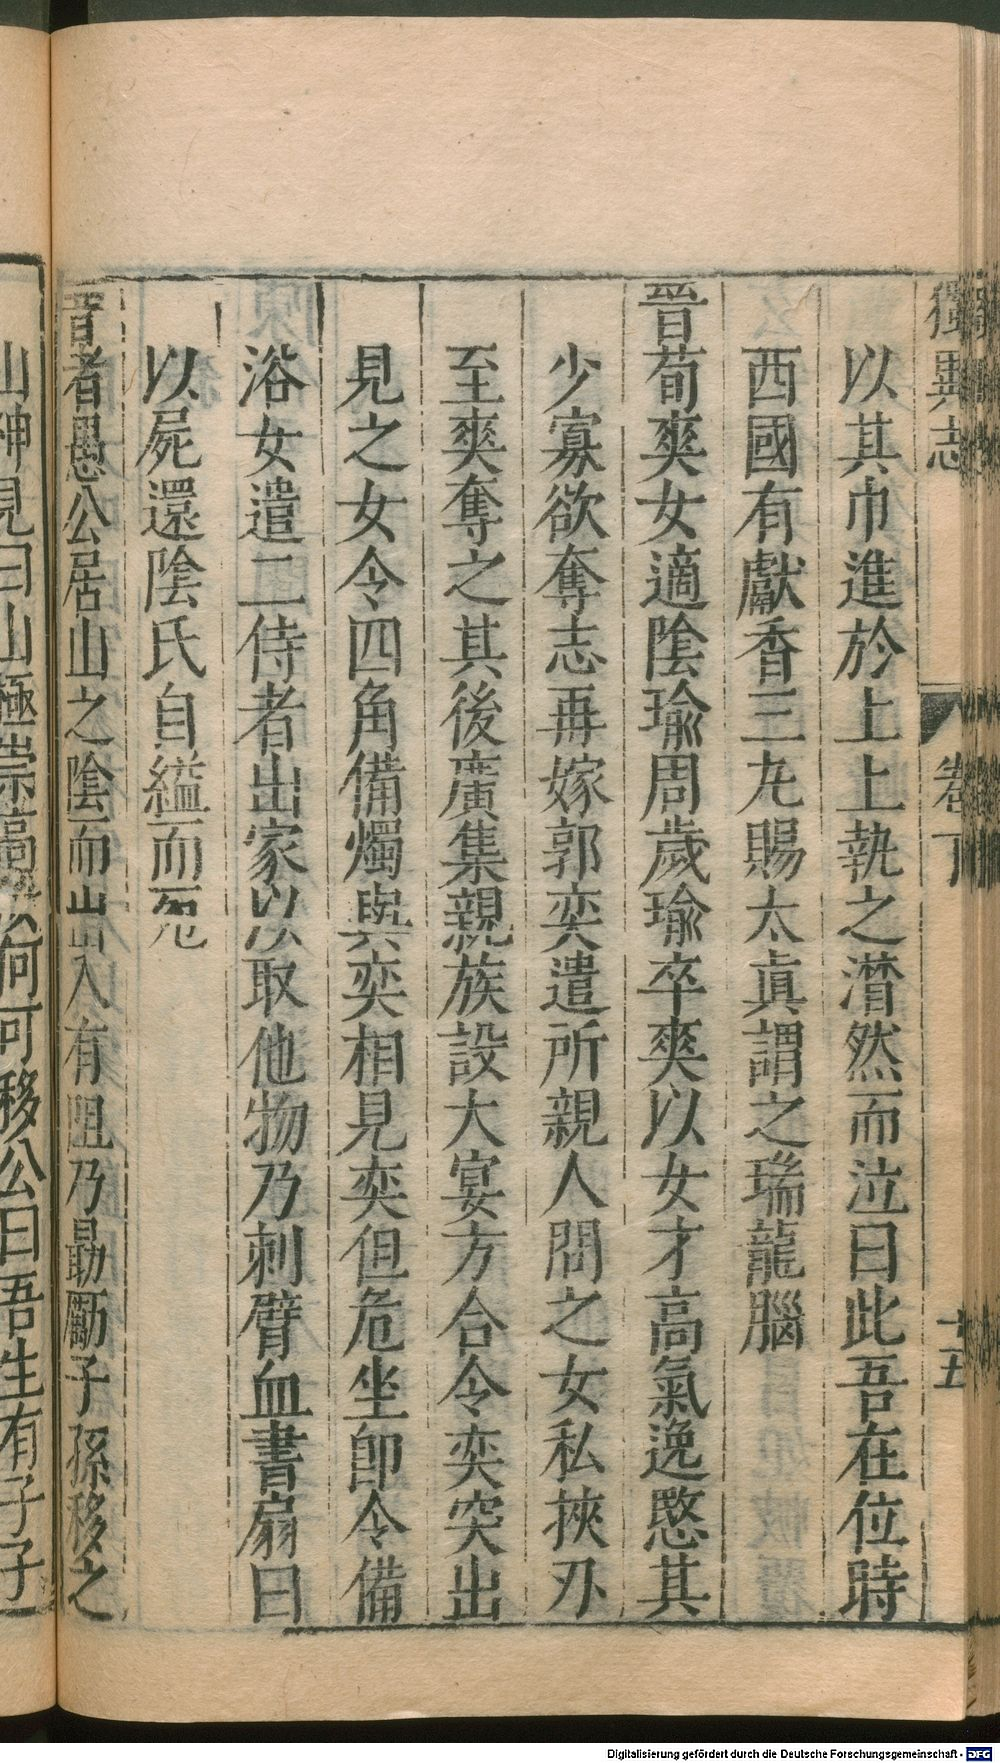 獨異志 卷下 十五
以其巾進於上上執之潸然而泣曰此吾在位時
西國有獻香三丸賜太眞謂之瑞龍腦
晉荀爽女適陰瑜周歲瑜卒爽以女才高氣逸愍其
少寡欲奪志再嫁郭奕遣所親人問之女私挾刃
至爽奪之其後廣集親族設大宴方合令奕突出
見之女令四角備燭與奕相見奕但危坐卽令備
浴女遣二侍者出家以取他物乃刺臂血書扇曰
以屍還陰氏自縊而死
昔者愚公居山之陰而出入有阻乃勗勵子孫移之
山神見曰山極崇高 何可移公曰吾生有子子
Digitalisierung gefördert durch die Deutsche Forschungsgemeinschaft - DFG